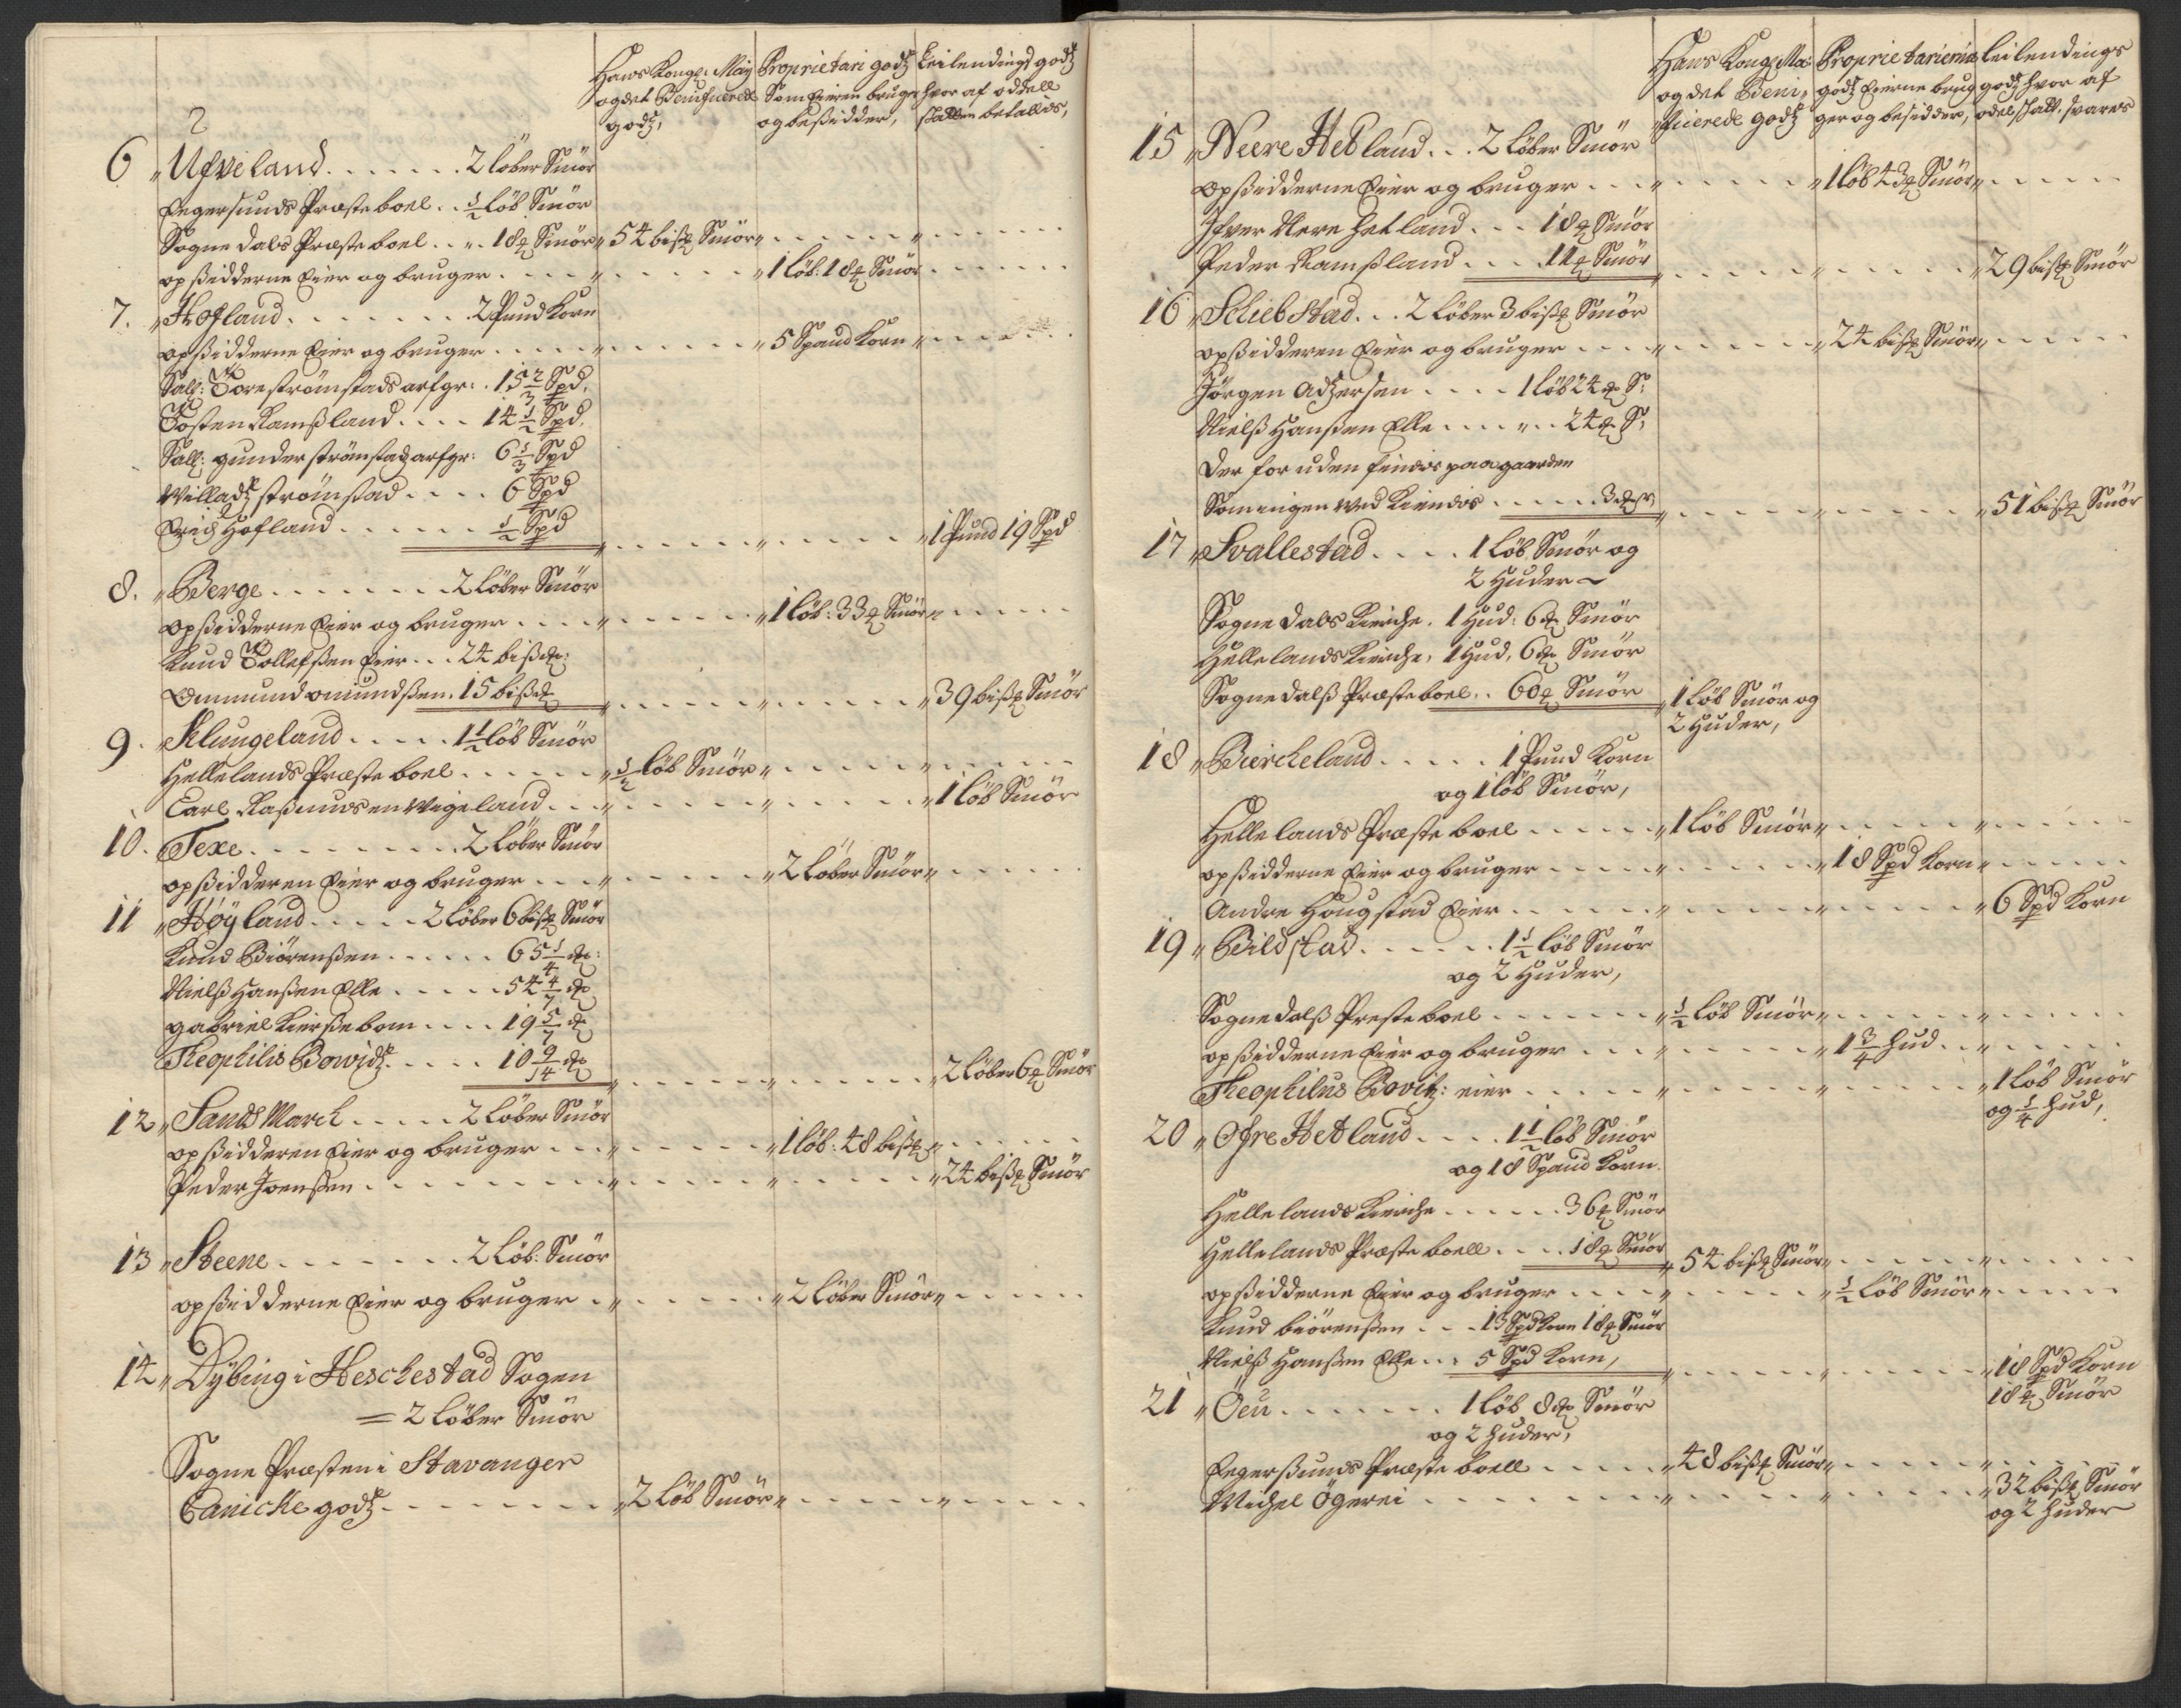 Hans Kongl: May
og det Benificerede
godtz,
Proprietari godtz
Som Eieren bruger
og besidder,
Leilendings godtz
hvor af oddell
skatten betallis,
2
6 Ufveland . . . . . . . 2 løber Smør
Eegersunds Præsteboel . . ½ løb Smør
Sogndals Præsteboel . . „ . 18 ℔ Smør „ 54 bis℔ Smør „
opsidderne Eier og bruger . . . . „ 1 løb: 18 ℔ Smør
7. Hofland . . . . . . . . 2 Pund Korn
opsidderne Eier og bruger . . . . . „ 5 Spand Korn „
Sall: Tore strømstads arfgr: . 15 2/3 Spd,
Tosten Ramsland . . . . 14 ½ Spd,
Sall: gunder strømstadz arfgr: 6 1/3 Spd
Willadtz strømstad . . . . 6 Spd
Erich Hofland . . . . . . ½ Spd
„ 1 Pund 19 Spd
8. Berge . . . . . . . 2 løber Smør
opsidderne Eier og bruger . . . . „ 1 løb: 33 ℔ Smør „
Knud Tollefsen Eier . . . 24 bis℔:
Ommund omundsen . 15 bis℔
„ 39 bis℔ Smør
9. Klungeland . . . . . 1½ løb Smør
Hellelands Præsteboel . . . . . . „ ½ løb Smør „
Carl Rasmusen Wigeland . . . „ 1 løb Smør
10. Texe . . . . . . . . . 2 løber Smør
opsidderen Eier og bruger . . . . „ 2 løber Smør „
11 Høyland . . . . . 2 løber 6 bis℔ Smør
Knud Biørensen . . . . . 65 1/4 ℔:
Nielss Hansen Elle . . . . . 54 4/7 ℔
gabriel Kierssebom . . . . 19 5/7 ℔
Theophilis Bowidtz . . . . . 10 9/14 ℔
„ 2 løber 6 ℔ Smør
12 „ Sands March . . . . . 2 løber Smør
opsidderen Eier og bruger . . . „ 1 løb: 48 bis℔ „
Peder Joensen . . . . . . . „ 24 bis℔ Smør
13 „ Steene . . . . . . . 2 løb: Smør
opsidderne Eier og bruger . „ 2 løber Smør „
14 „ Dybing i Heschestad Sogen
= 2 løber Smør
Sogne Præsten i Stavanger
Canicke godtz . . . . . . . . „ 2 løb Smør „
Hans Kongl Ma:
og det Beni,
ficerede godtz
Proprietariernis
godtz Eierne brug
ger og besidder,
leilendings
godtz hvor af
odelskatt, svares
15 „ Neere Hetland . . . 2 løber Smør
opsidderne Eier og bruger . . . „ 1 løb 43 ℔ Smør „
Ifver Nere hetland . . . 18 ℔ Smør
Peder Ramsland . . . 11 ℔ Smør
„ 29 bis℔ Smør
16 „ Schiebstad . . . 2 løber 3 bis℔ Smør
opsidderen Eier og bruger . . . . „ 24 bis℔ Smør „
Jørgen Adzersen . . . . 1 løb 24 ℔ S:
Nielss Hanssen Elle . . . „ . . 24 ℔ S:
Der for uden findes paa gaarden
Som ingen Wed Kiendis . . . . . . 3 ℔ S:
„ 51 bis℔ Smør
17 „ Svallestad . . . . 1 løb Smør og
2 Huder ~
Sogne dals Kierche . 1 Hud: 6 ℔ Smør
Hellelands Kierche, 1 Hud, 6 ℔ Smør
Sogne dalss Præsteboel . . 60 ℔ Smør „ 1 løb Smør og
2 Huder,
18 „ Bircheland . . . . . 1 Pund Korn
og 1 løb Smør,
Hellelands Præsteboel . . . . . . „ 1 løb Smør „
opsidderne Eier og bruger . . . . . „ 18 Spd Korn „
Andre Hougstad Eier . . . . . . „ 6 Spd Korn
19 „ Bildstad . . . . . . 1½ løb Smør
og 2 Huder,
Sogne dalss Presteboel . . . . . . . „ ½ løb Smør „
opsidderne Eier og bruger . . . . „ 1 3/4 hud . . „
Theophilus Bovitz: eier . . . . . „ 1 løb Smør
og 1/4 hud,
20 „ Ofre Hetland . . . . 1½ løb Smør
og 18 Spand Korn.
Hellelands Kierche . . . . . . 36 ℔ Smør
Hellelands Præsteboell . . . . 18 ℔ Smør „ 54 bis℔ Smør „
opsidderne Eier og bruger . . . . „ ½ løb Smør „
Knud biørensen . . . 13 Spd Korn 18 ℔ Smør
Nielss Hansen Elle . . . 5 Spd Korn,
„ 18 Spd Korn
18 ℔ Smør
21 „ Øeu . . . . . . . 1 løb 8 ℔ Smør
og 2 huder,
Eegerssunds Præsteboell . . . . . . „ 48 bis℔ Smør „
Michel Ögerei . . . . . . . „ 32 bis℔ Smør
og 2 huder